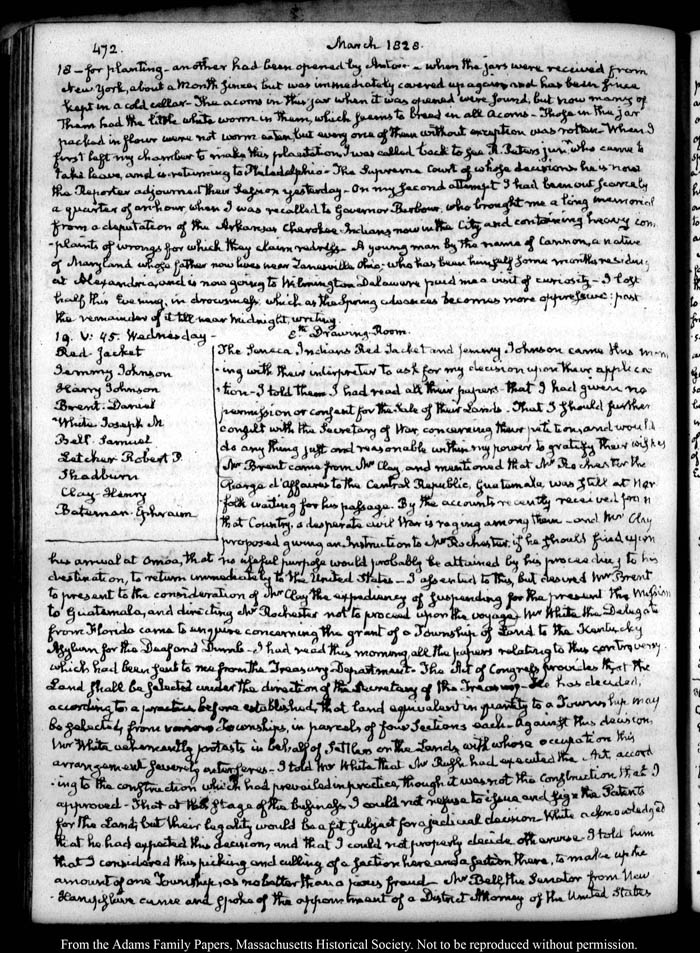 472.
March 1828.
18 - for planting - another had been opened by Antoine - when the jars were received from
New York, about a Month since, but was immediately covered up again and has been since
kept in a cold cellar - The acorns in this jar when it was opened were sound, but now many of
them had the little white worm in them, which seems to breed in all Acorns - Those in the jar
packed in flour were not worm eaten but every one of them without exception was rotten - When I
first left my chamber to make this plantation, I was called back to see R. Peters junr. who came to
take leave, and is returning to Philadelphia - The Supreme Court of whose decisions he is now
the Reporter adjourned their Session yesterday - On my second attempt I had been out scarcely
a quarter of an hour when I was recalled to Governor Barbour, who brought me a long memorial
from a deputation of the Arkansas Cherokee Indians now in the City and containing heavy com
-plaints of wrongs for which they claim redress - A young man by the name of Cannon, a native
of Maryland whose father now lives near Zanesville Ohio - who has been himself some months residing
at Alexandria, and is now going to Wilmington Delaware paid me a visit of curiosity - I lost
half this Evening, in drowsiness, which as the Spring advances becomes more oppressive: past
the remainder of it till near Midnight, writing.
19. V: 45. Wednesday -
8th Drawing-Room.
Red Jacket
Jemmy Johnson
Harry Johnson
Brent. Daniel
White Joseph M
Bell. Samuel
Letcher Robert P.
Thadburn
Clay-Henry
Bateman-Ephraim
The Seneca Indians Red Jacket and Jemmy Johnson came this morn
-ing with their interpreter to ask for my decision upon their applica
-tion - I told them I had read all their papers - that I had given no
permission or consent for the Sale of their Lands - That I should further
consult with the Secretary of War concerning their petition, and would
do any thing just and reasonable within my power to gratify their wishes
Mr Brent came from Mr Clay, and mentioned that Mr Rochester the
Chargé d'affaires to the Central Republic, Guatemala was still at Nor
-folk waiting for his passage. By the accounts recently received from
that Country, a desperate civil War is raging among them - and Mr Clay
proposed giving an Instruction to Mr Rochester, if he should find upon
his arrival at Omoa, that no useful purpose would probably be attained by his proceeding to his
destination, to return immediately to the United States - I assented to this, but desired Mr Brent
to present to the consideration of Mr Clay the expediency of suspending for the present this Mission
to Guatemala, and directing Mr Rochester not to proceed upon the voyage. Mr White the Delegate
from Florida came to enquire concerning the grant of a Township of Land to the Kentucky
Asylum for the Deaf and Dumb - I had read this morning all the papers relating to this controversy
which had been sent to me from the Treasury Department - The Act of Congress provides that the
Land shall be selected under the direction of the Secretary of the Treasury - He has decided,
according to a practice before established, that land equivalent in quantity to a Township may
be selected, from various Townships, in parcels of four Sections each - Against this decision,
Mr White vehemently protests in behalf of Settlers on the Lands, with whose occupation this
arrangement severely interferes - I told Mr White that Mr Rush had executed the Act, accord
-ing to the construction which had prevailed in practice, though it was not the Construction that I
approved - That at this stage of the business I could not refuse to issue and sign the Patents
for the Land; but their legality would be a fit subject for a judicial decision - White acknowledged
that he had expected this decision, and that I could not properly decide otherwise. I told him
that I considered this picking and culling of a section here and a section there, to make up the
amount of one Township, as no better than a pious fraud - Mr Bell, the Senator from New
-Hampshire came and spoke of the appointment of a District Attorney of the United States
From the Adams Family Papers, Massachusetts Historical Society. Not to be reproduced without permission.